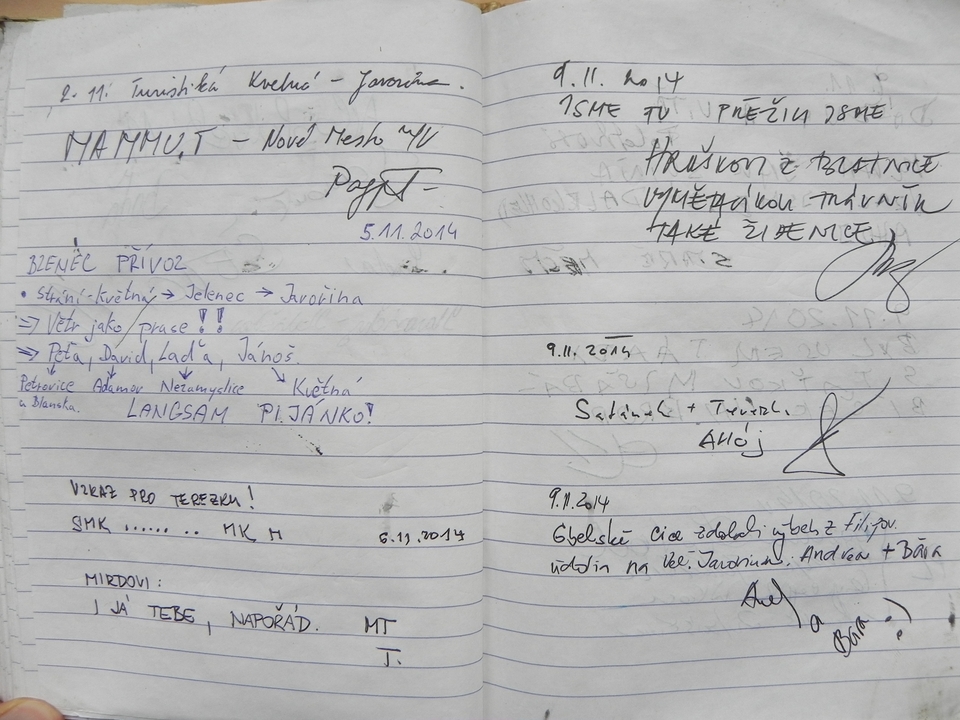 2. 11. Turistiká Kvetná - Javorina.
MAMMUT - Nové Mesto n/V
5.11.2014
BZENEC PŘÍVOZ
• Strání-Květná → Jelenec → Javořina
⇒ Větr jako prase!!
⇒ Péťa, David, Laďa, Jánoš.
Petrovice Adamov Nezamyslice Květná
u Blanska.
LANGSAM PIJÁNKO!
VZKAZ PRO TEREZKU!
SMK ........ MK M 6.11.2014
MIRDOVI:
I JÁ TEBE, NAPOŘÁD. MT
T.
9.11.2014
JSME TU PŘEŽILI JSME
HRUŠKOU Z BLATNICE
TRÁVNÍK
TAKÉ ŽIDENICE
9.11.2014
Satánek +
AHOJ
9.11.2014
Gbelské cice zdolali výbeh z Filipov.
údolia na Veľ. Javorinu: Andrea + Bára
a
Bára :)